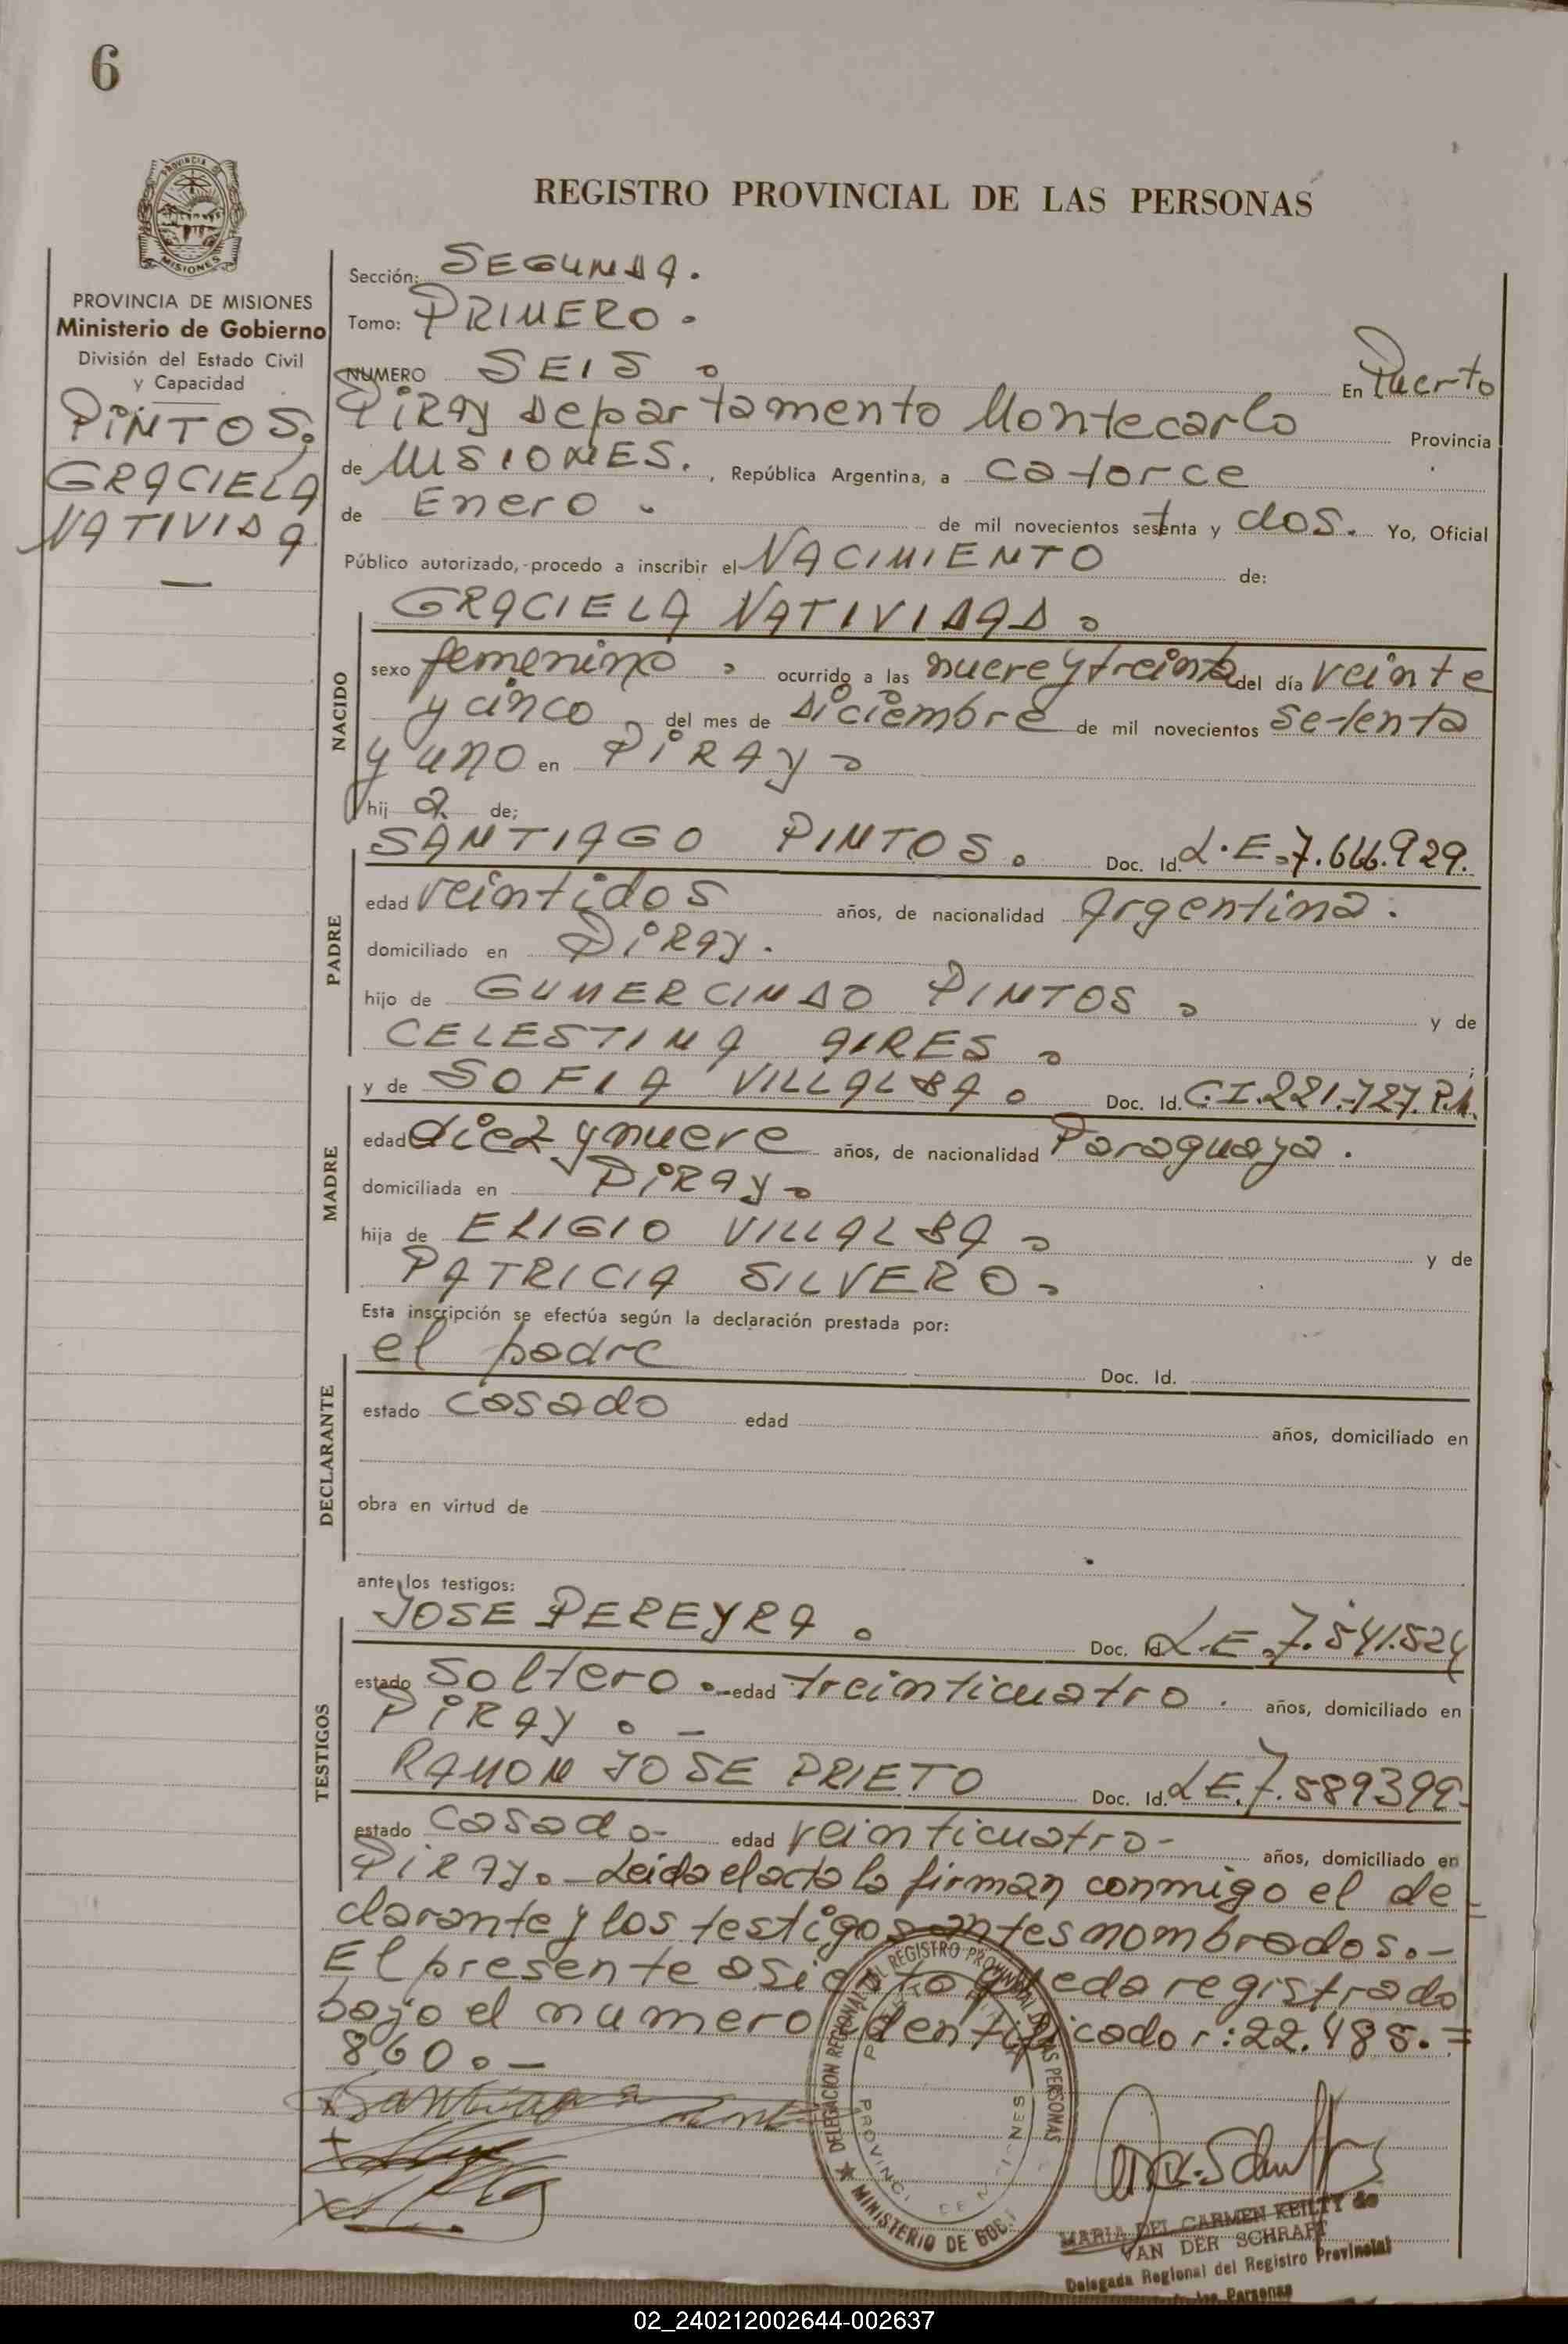 6
PROVINCIA
MISIONES
REGISTRO PROVINCIAL DE LAS PERSONAS
PROVINCIA DE MISIONES
Ministerio de Gobierno
División del Estado Civil
y Capacidad
PINTOS,
GRACIELA
NATIVIDA
Sección: SEGUNDA.
Tomo: PRIMERO.
NUMERO SEIS. En Puerto
PIRAY Departamento Montecarlo Provincia
de MISIONES., República Argentina, a catorce
de Enero. de mil novecientos setenta y dos. Yo, Oficial
Público autorizado, procedo a inscribir el NACIMIENTO de:
NACIDO
GRACIELA NATIVIDAD.
sexo femenino. ocurrido a las nueve y treinta del día veinte
y cinco, del mes de diciembre de mil novecientos setenta
y uno en PIRAY.
hij a de;
PADRE
SANTIAGO PINTOS. Doc. Id. L.E. 7.666.929.
edad veintidos años, de nacionalidad Argentina.
domiciliado en PIRAY.
hijo de GUMERCINDO PINTOS. y de
CELESTINA AIRES.;
MADRE
y de SOFIA VILLALBA. Doc. Id. C.I. 221.727.
edad diez y nueve años, de nacionalidad Paraguaya.
domiciliada en PIRAY.
hija de ELIGIO VILLALBA. y de
PATRICIA SILVERO.
Esta inscripción se efectúa según la declaración prestada por:
DECLARANTE
el padre Doc. Id.
estado casado edad años, domiciliado en
obra en virtud de
ante los testigos:
TESTIGOS
JOSE PEREYRA. Doc. Id. L.E. 7.541.524
estado soltero.- edad treinticuatro. años, domiciliado en
PIRAY.-
RAMON JOSE PRIETO Doc. Id. L.E. 7.589399.
estado casado- edad veinticuatro- años, domiciliado en
PIRAY.- Leida el acta la firman conmigo el de
clarante y los testigos antes nombrados.-
El presente asiento queda registrado
bajo el numero identificador: 22.488.=
860.-
DELEGACION REGIONAL DEL REGISTRO PROVINCIAL DE LAS PERSONAS
MINISTERIO DE GOB.
MARIA DEL CARMEN KEILTY de
VAN DER SCHRAFT
Delegada Regional del Registro Provincial
de las Personas
02_240212002644-002637